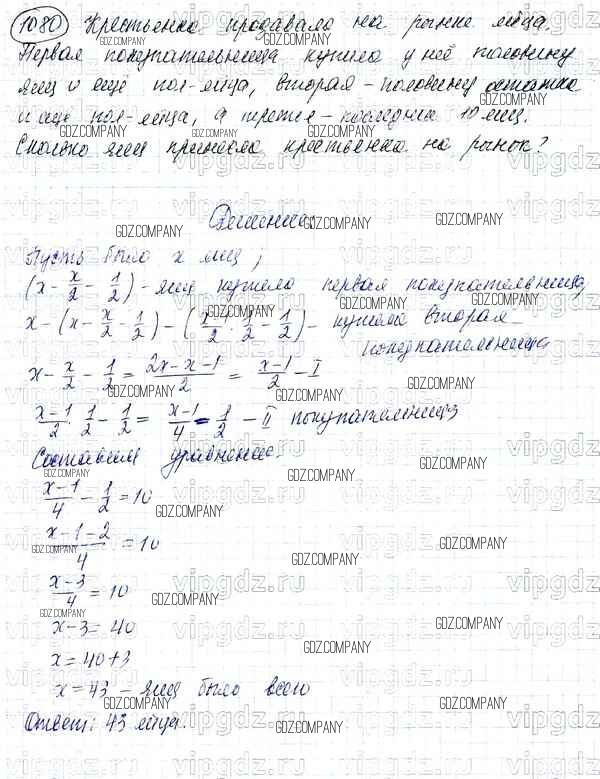 1080) Крестьянка продавала на рынке яйца.
Первая покупательница купила у неё половину
яиц и еще пол-яйца, вторая - половину остатка
и еще пол-яйца, а третья - последние 10 яиц.
Сколько яиц принесла крестьянка на рынок?
Решение.
Пусть было x яиц,
(x - x/2 - 1/2) - яиц купила первая покупательница,
x - (x - x/2 - 1/2) - ( 1/2 - 1/2) - купила вторая
покупательница
x - x/2 - 1/2 = (2x-x-1)/2 = (x-1)/2 - I
(x-1)/2 · 1/2 - 1/2 = (x-1)/4 - 1/2 - II покупательница
Составим уравнение.
(x-1)/4 - 1/2 = 10
(x-1-2)/4 = 10
(x-3)/4 = 10
x-3 = 40
x = 40+3
x = 43 - яиц было всего
Ответ: 43 яйца.
GDZ.COMPANY
vipgdz.ru